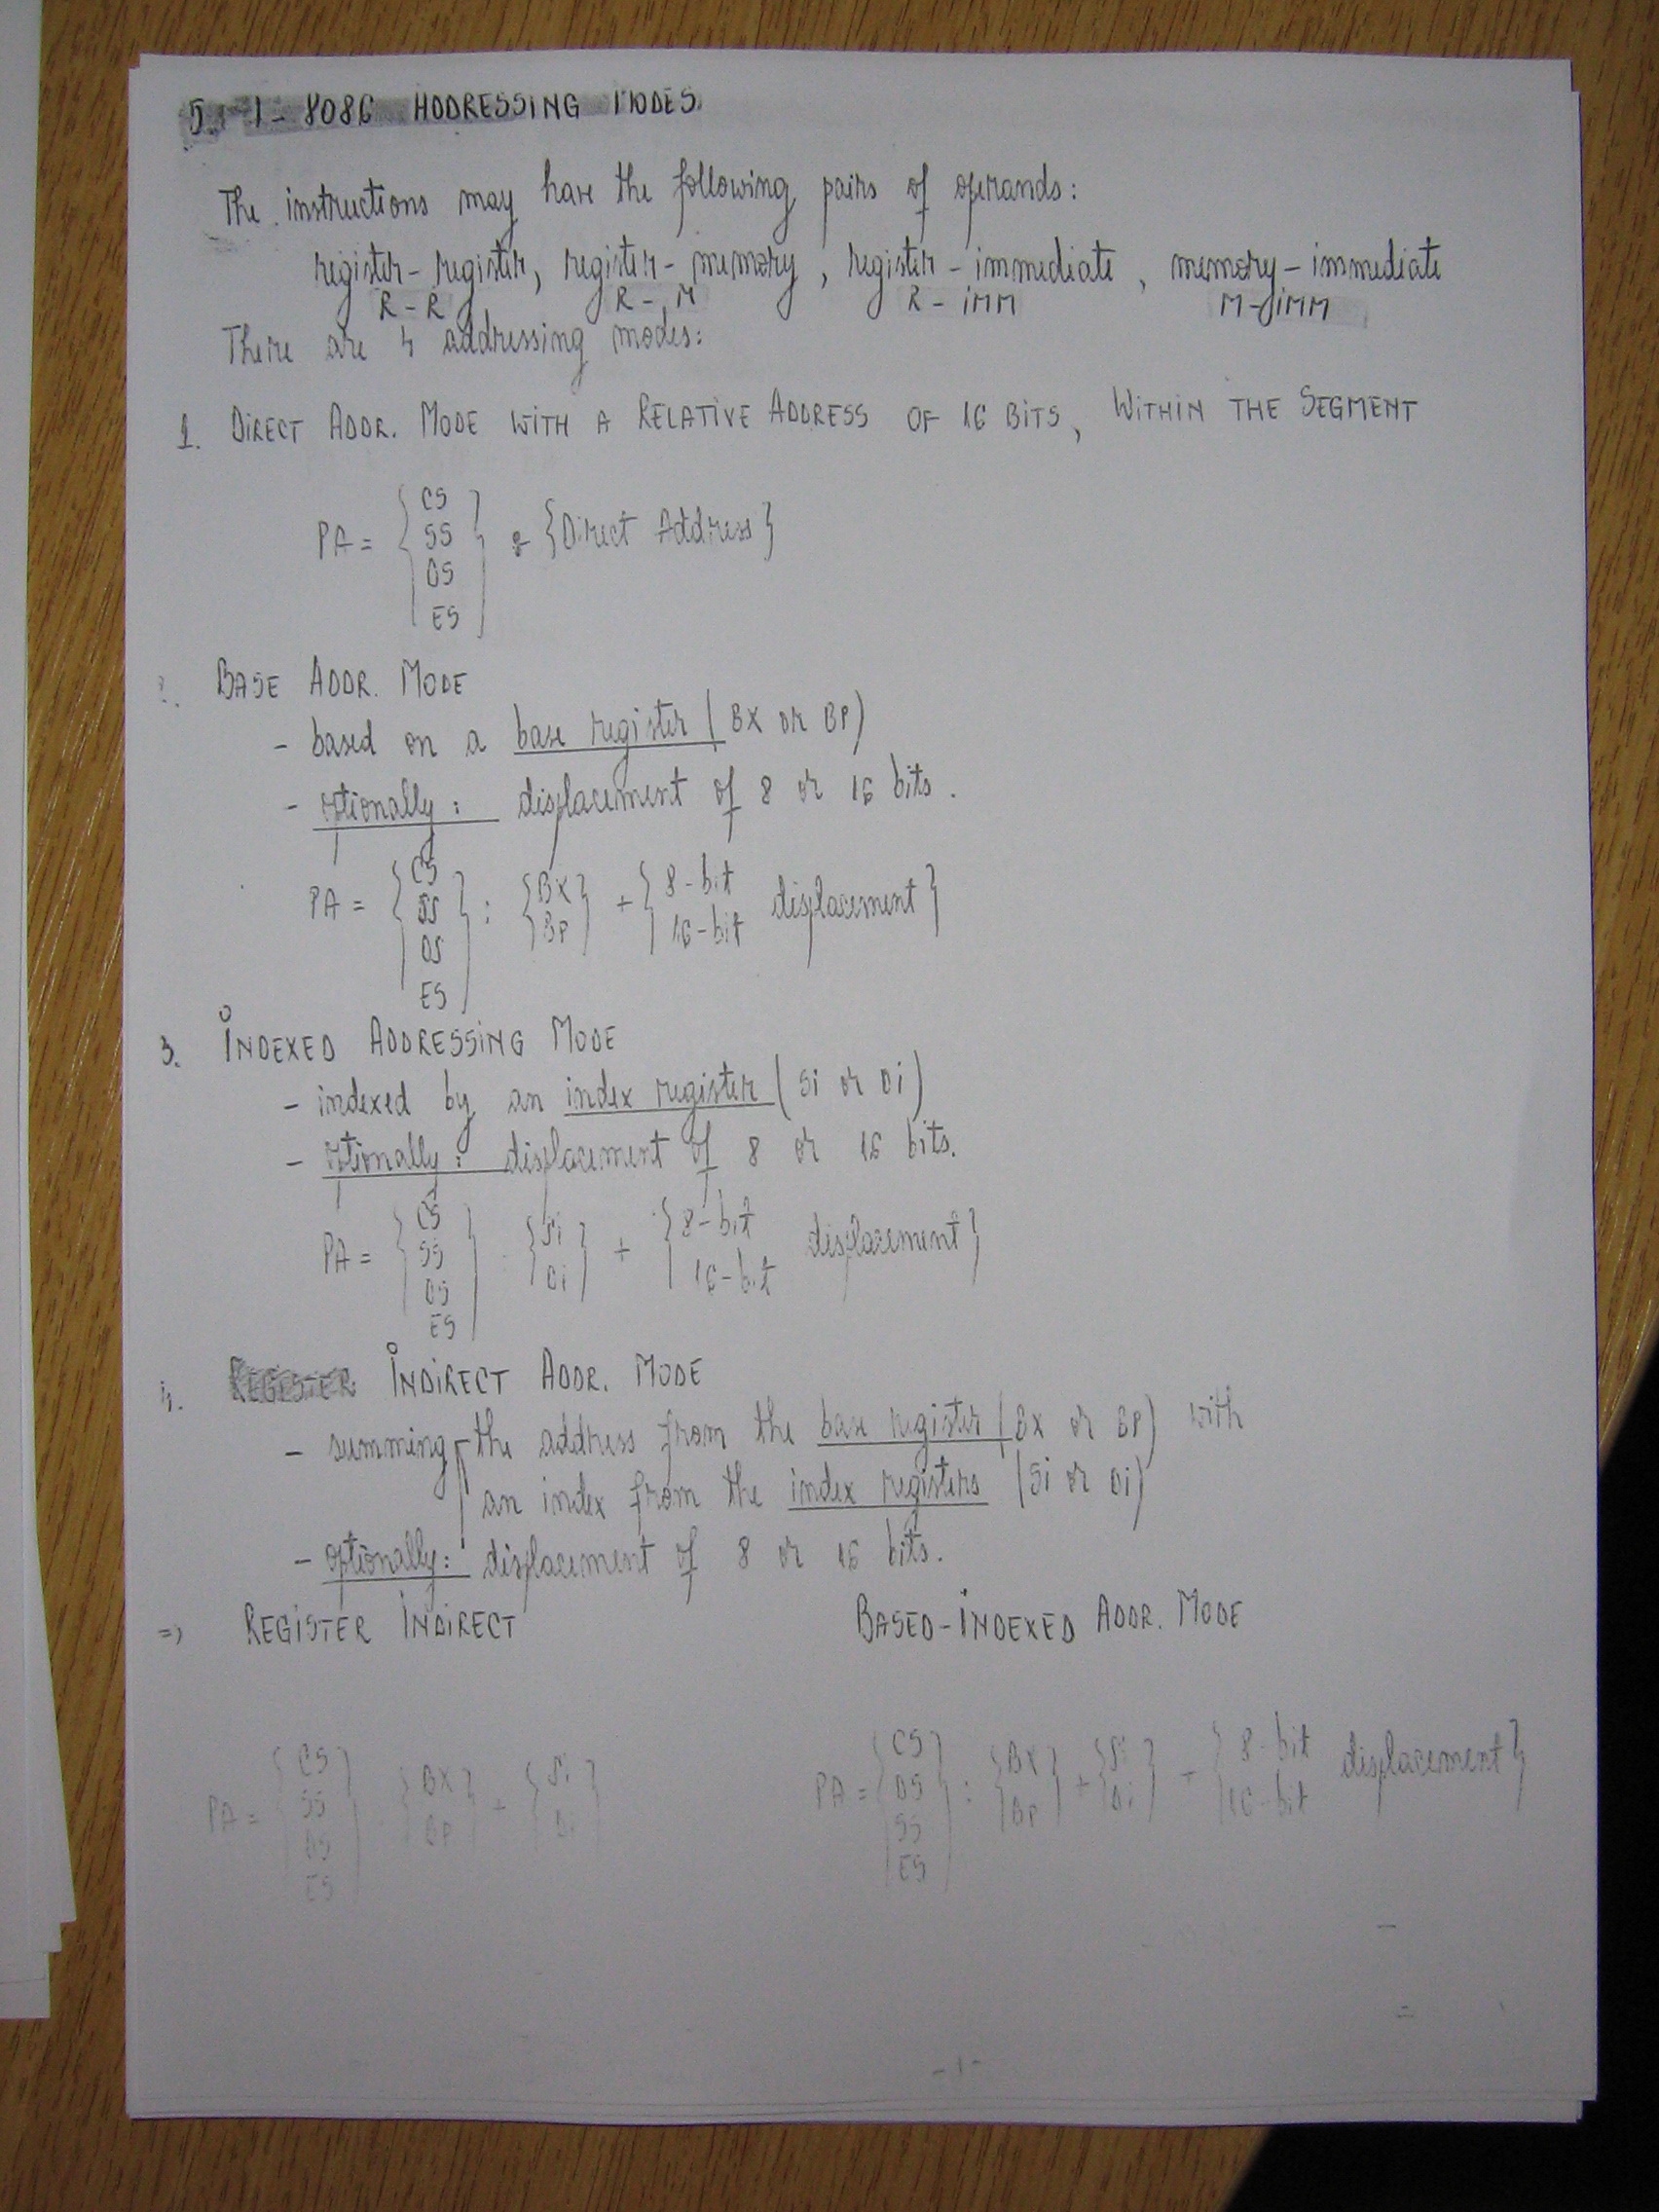 5.1-1- 8086 ADDRESSING MODES
The instructions may have the following pairs of operands:
register-register, register-memory, register-immediate, memory-immediate
R-R R-M R-IMM M-IMM
There are 4 addressing modes:
1. DIRECT ADDR. MODE WITH A RELATIVE ADDRESS OF 16 BITS, WITHIN THE SEGMENT
CS
SS
PA = { } : {Direct Address}
DS
ES
2. BASE ADDR. MODE
- based on a base register (BX or BP)
- optionally: displacement of 8 or 16 bits.
CS
PA = { SS } : { BX } + { 8-bit displacement }
DS BP 16-bit
ES
3. INDEXED ADDRESSING MODE
- indexed by an index register (SI or DI)
- optionally: displacement of 8 or 16 bits.
CS
PA = { SS } : { SI } + { 8-bit displacement }
DS DI 16-bit
ES
4. REGISTER INDIRECT ADDR. MODE
- summing the address from the base register (BX or BP) with
an index from the index registers (SI or DI)
- optionally: displacement of 8 or 16 bits.
=> REGISTER INDIRECT BASED-INDEXED ADDR. MODE
CS CS
PA = { SS } : { BX } + { SI } PA = { DS } : { BX } + { SI } + { 8-bit displacement }
DS BP DI SS BP DI 16-bit
ES ES
-1-